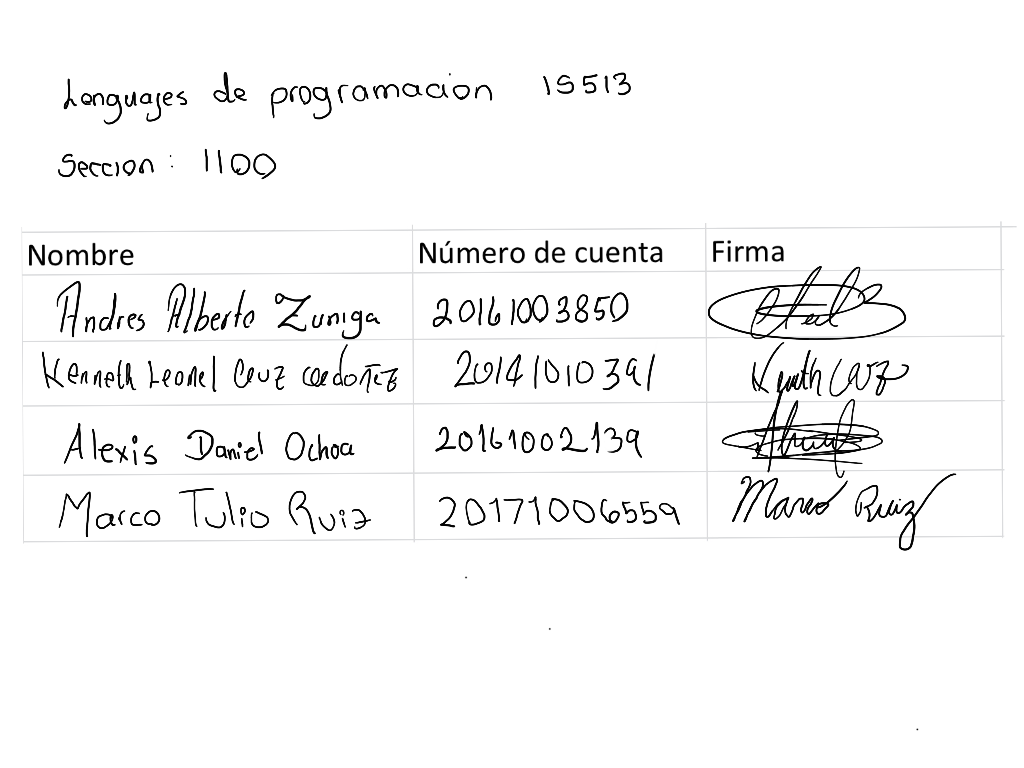 Lenguajes de programacion IS513
Seccion: 1100
Nombre Número de cuenta Firma
Andres Alberto Zuniga 20161003850
Kenneth Leonel Cruz Ordoñez 20141010391 Kenneth Cruz
Alexis Daniel Ochoa 20161002139
Marco Tulio Ruiz 20171006559 Marco Ruiz